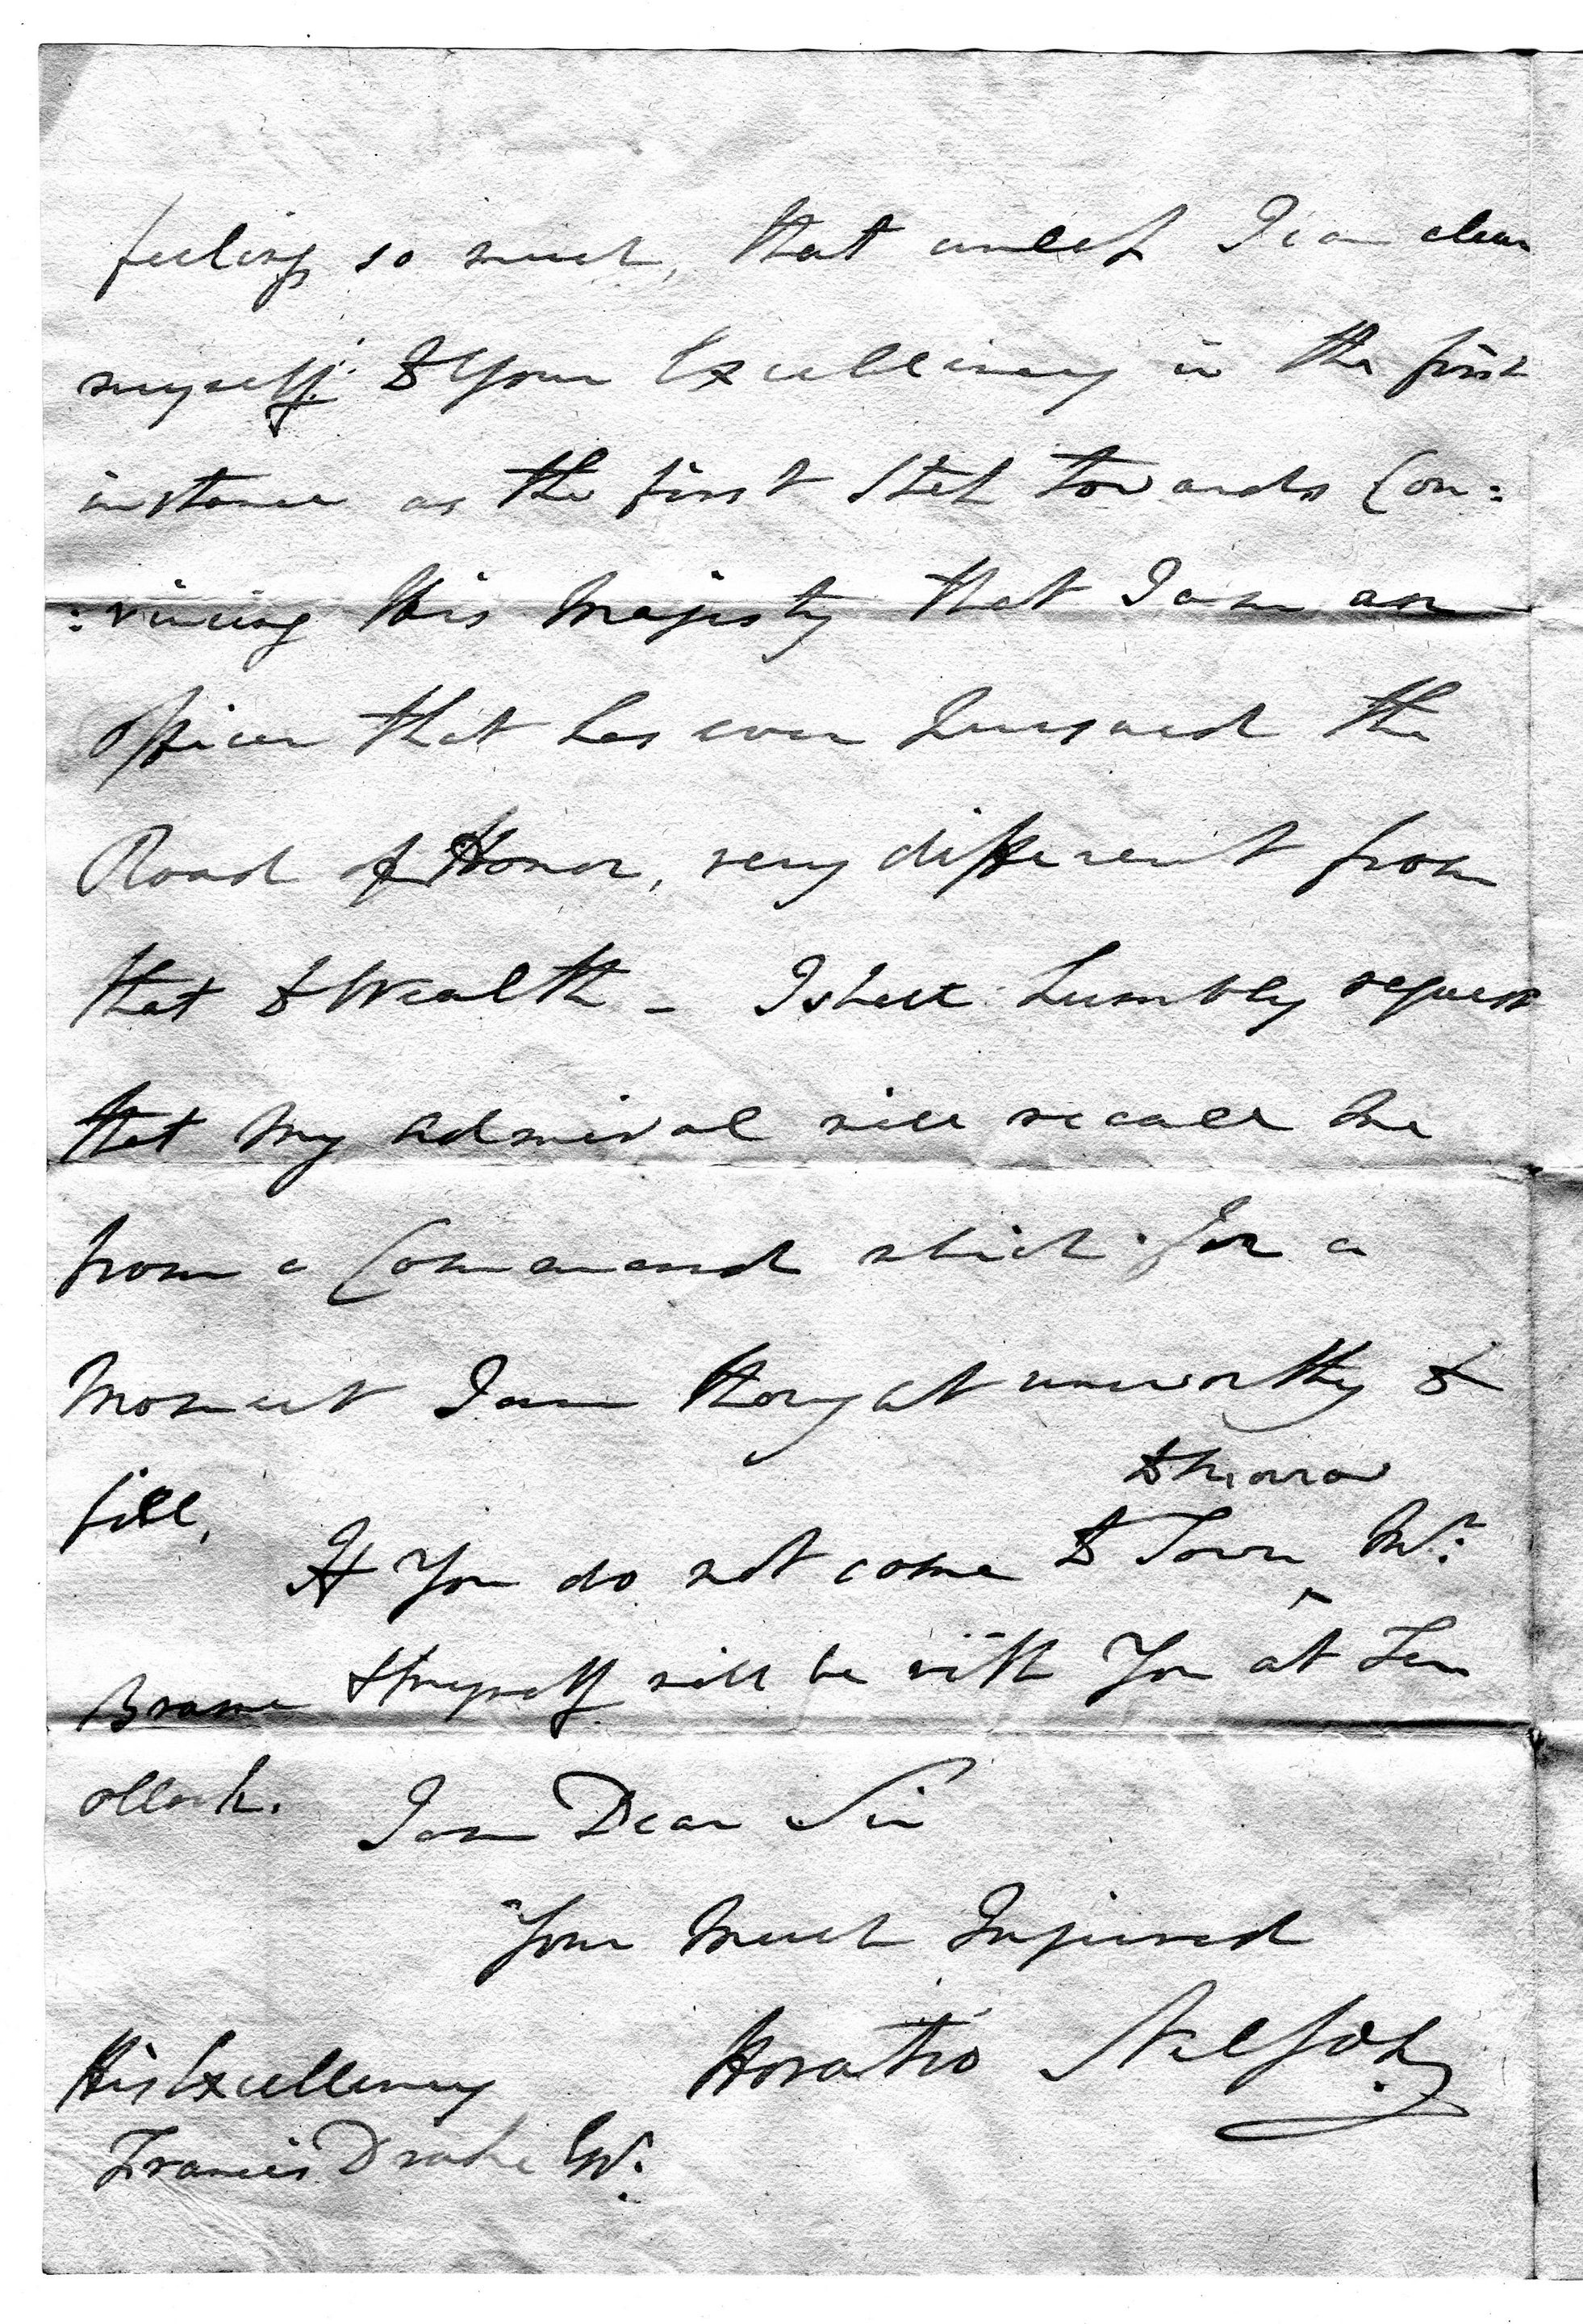 feelings so much, that unless I can clear
myself to Your Excellency in the first
instance as the first step towards Con:
:vincing His Majesty that I am an
Officer that has ever pursued the
Road of Honor, very different from
that to Wealth - I shall humbly request
that my Admiral will recall me
from a Command which for a
Moment I am thought unworthy to
fill,
to morrow
If You do not come to Town ^ Mr:
Brame & myself will be with You at Ten
oClock.
I am Dear Sir
Your Much Injured
Horatio Nelson.
His Excellency
Francis Drake Esqr.